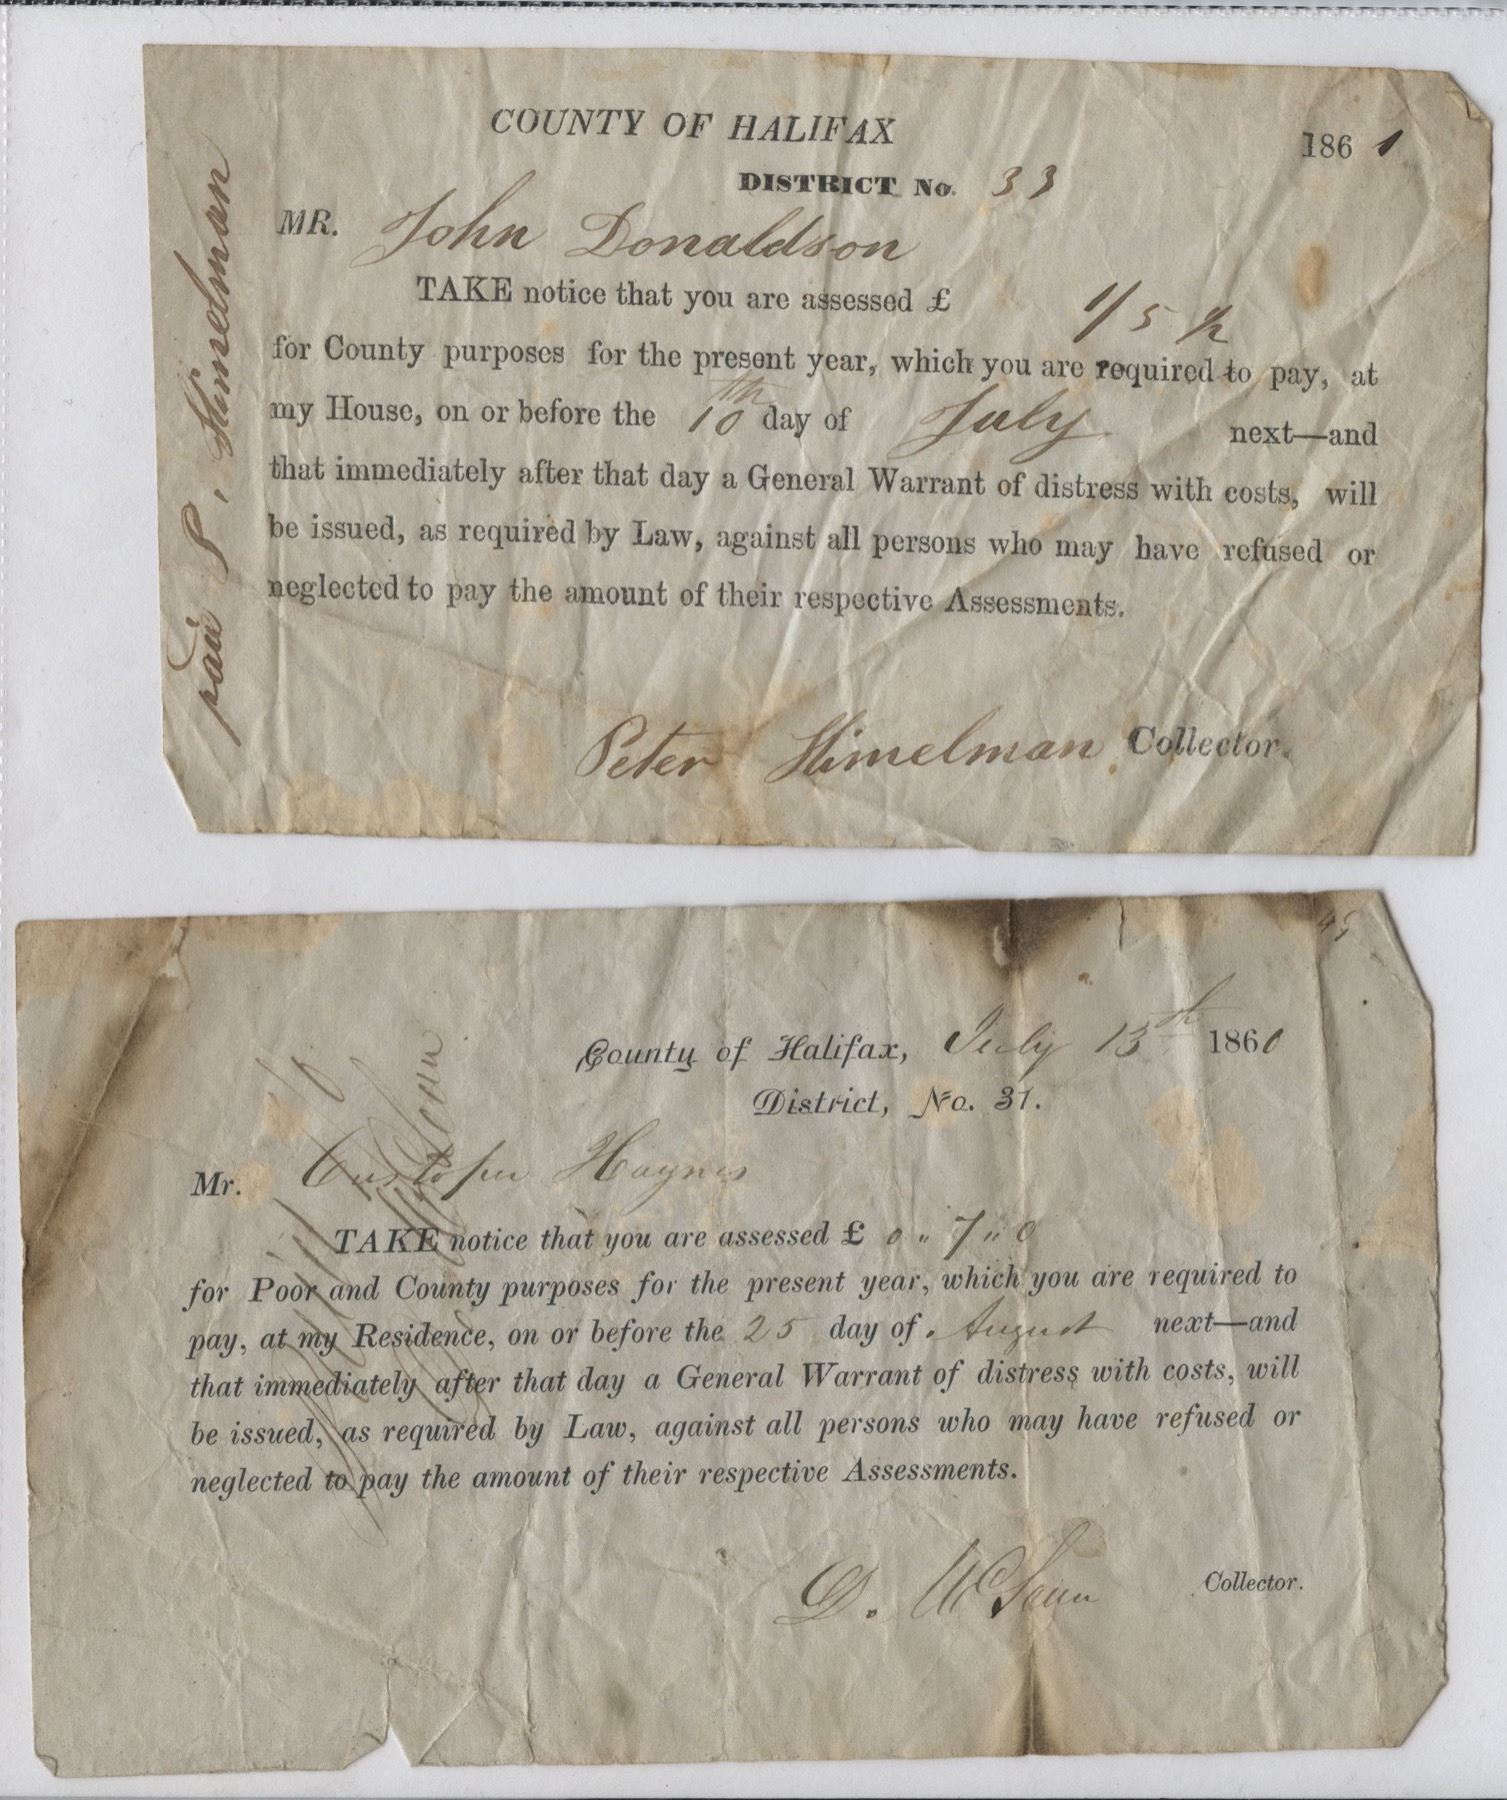 COUNTY OF HALIFAX 1861
DISTRICT No. 33
MR. John Donaldson
TAKE notice that you are assessed £ 1/5 ½
for County purposes for the present year, which you are required to pay, at
my House, on or before the 10th day of July next—and
that immediately after that day a General Warrant of distress with costs, will
be issued, as required by Law, against all persons who may have refused or
neglected to pay the amount of their respective Assessments.
Peter Himelman Collector.
paid P. Himelman
County of Halifax, July 13th 1860
District, No. 31.
Mr. Custofer Haynes
TAKE notice that you are assessed £ 0 " 7 " 0
for Poor and County purposes for the present year, which you are required to
pay, at my Residence, on or before the 25 day of August next—and
that immediately after that day a General Warrant of distress with costs, will
be issued, as required by Law, against all persons who may have refused or
neglected to pay the amount of their respective Assessments.
D. Collector.